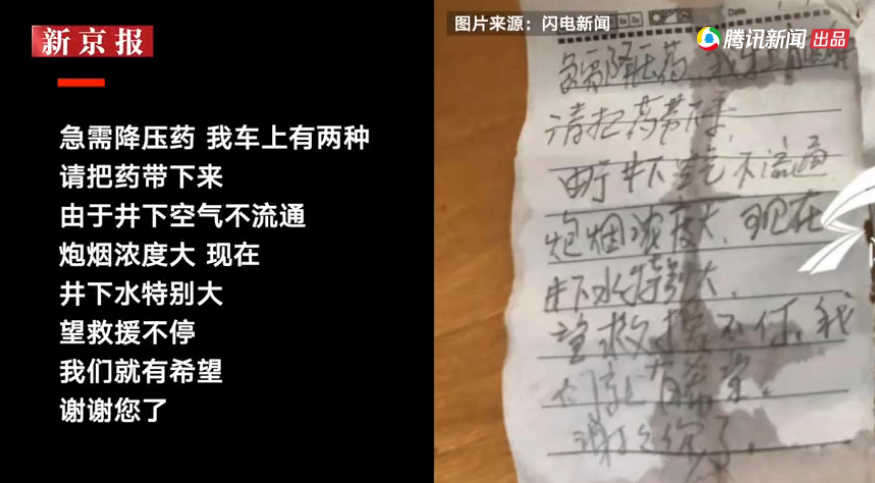 新京报
急需降压药 我车上有两种
请把药带下来
由于井下空气不流通
炮烟浓度大 现在
井下水特别大
望救援不停
我们就有希望
谢谢您了
图片来源：闪电新闻
Date
腾讯新闻 出品
急需降压药 我车上有两种
请把药带下来
由于井下空气不流通
炮烟浓度大，现在
井下水特别大，
望救援不停，我
们就有希望。
谢谢您了。